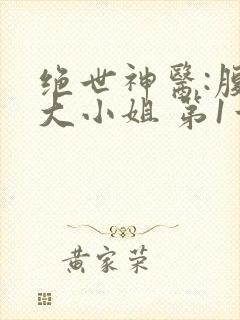 绝世神医:腹
大小姐 第1
黄家荣